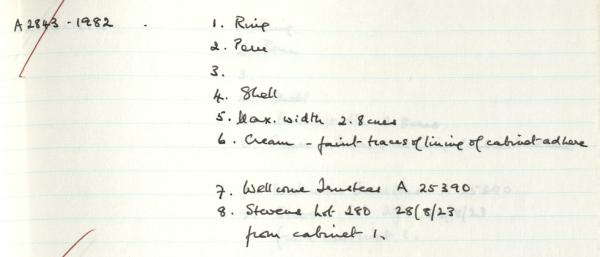 A 2843 - 1982 . 1. Ring
2. Peru
3.
4. Shell
5. Max. width 2.8 cms
6. Cream - faint traces of lining of cabinet adhere
7. Wellcome Trustees A 25390
8. Stevens Lot 280 28/8/23
from cabinet 1.